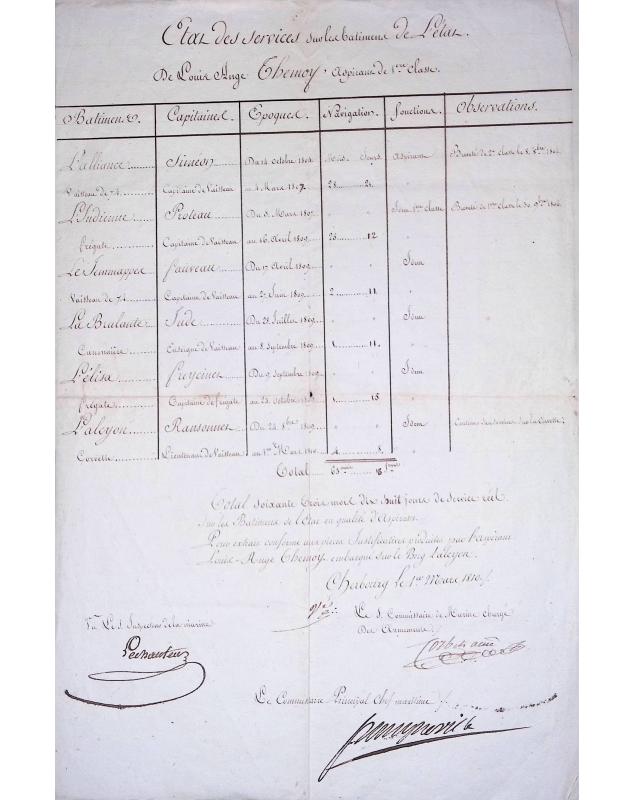 Etat des services sur les batimens de L'état.
De Louis Ange Themoy, Aspirant de 1ere Classe.
Batimens. Capitaines. Epoques. Navigation. Fonctions. Observations.
L'alliance Siméon Du 14 octobre 1804 Mois Jours Aspirant Breveté de 2e classe le 8. 8bre 1804
Vaisseau de 74 Capitaine de Vaisseau au 4 Mars 1807 28
L'Indienne Proteau Du 5 Mars 1807 " " Idem 1ere classe Breveté de 1ere classe le 30. 9bre 1806
frégate Capitaine de Vaisseau au 16 Avril 1809 25 12
Le Jemmappes fauveau Du 17 Avril 1809 " " Idem
Vaisseau de 74 Capitaine de Vaisseau au 27 Juin 1809 2 11 "
La Brulante Jude Du 28 Juillet 1809 " " Idem
Canonnière Enseigne de Vaisseau au 8 Septembre 1809 1 11 "
L'élisa freycinet Du 9 Septembre 1809 " " Idem
frégate Capitaine de frégate au 23 octobre 1 15 "
L'alcyon Ransonnet Du 24 8bre 1809 " " Idem Continue ses services sur la Corvette
Corvette Lieutenant de Vaisseau au 1er Mars 1810 4 8 "
Total 63 mois 18 jours
Total soixante Trois mois dix huit jours de service réel
Sur les Batimens de l'état en qualité d'Aspirant.
Pour extrait conforme aux pièces Justificatives produites par l'aspirant
Louis-Ange Themoy embarqué sur le Brig L'alcyon.
Cherbourg Le 1er Mars 1810
Vu Le S. Inspecteur de la marine
Le S. Commissaire de Marine Chargé
Des Armements
Le Commissaire Principal Chef maritime